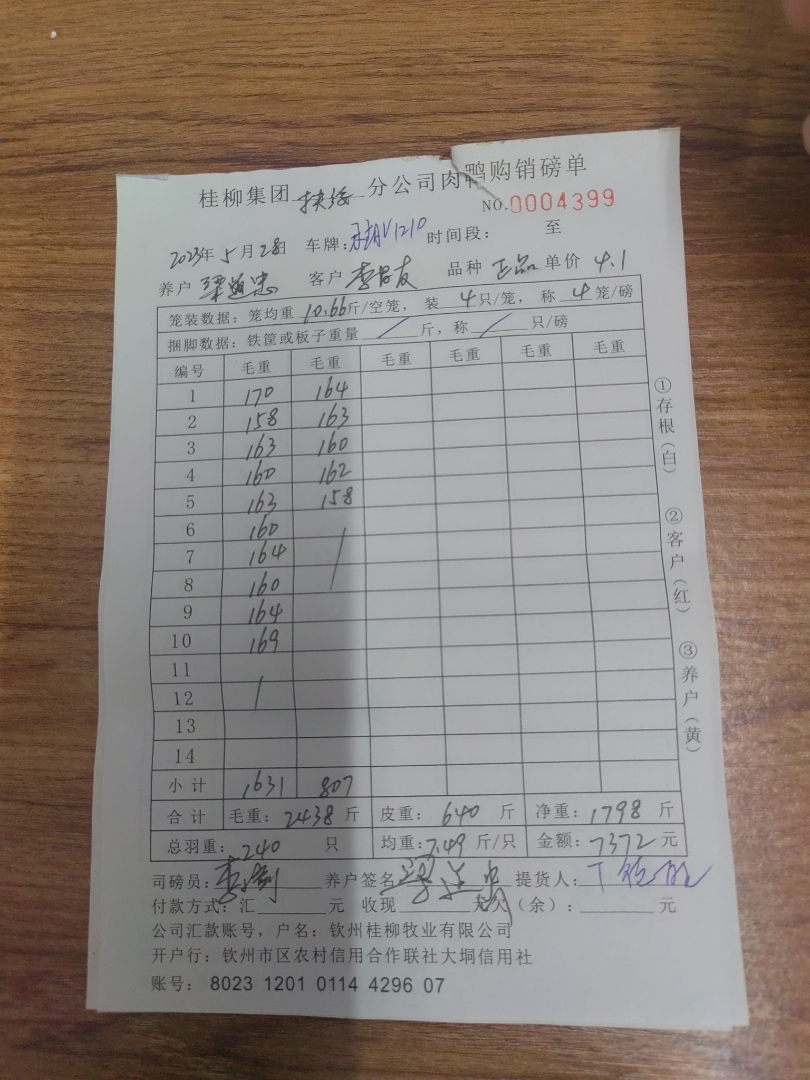 桂柳集团 扶绥 分公司肉鸭购销磅单
NO.0004399
2023年 5月28日 车牌: V1210 时间段: 至
养户 梁道忠 客户 李昌友 品种 正品 单价 4.1
笼装数据：笼均重 10.66斤/空笼， 装 4只/笼， 称 4笼/磅
捆脚数据：铁筐或板子重量 / 斤，称 / 只/磅
编号 毛重 毛重 毛重 毛重 毛重 毛重
1 170 164
2 158 163
3 163 160
4 160 162
5 163 158
6 160
7 164
8 160
9 164
10 169
11
12
13
14
小计 1631 807
合计 毛重：2438 斤 皮重：640 斤 净重：1798 斤
总羽重：240 只 均重：7.49 斤/只 金额：7372 元
司磅员： 养户签名 提货人：
付款方式：汇 元 收现 元欠（余）： 元
公司汇款账号，户名：钦州桂柳牧业有限公司
开户行：钦州市区农村信用合作联社大垌信用社
账号： 8023 1201 0114 4296 07
①存根（白）
②客户（红）
③养户（黄）